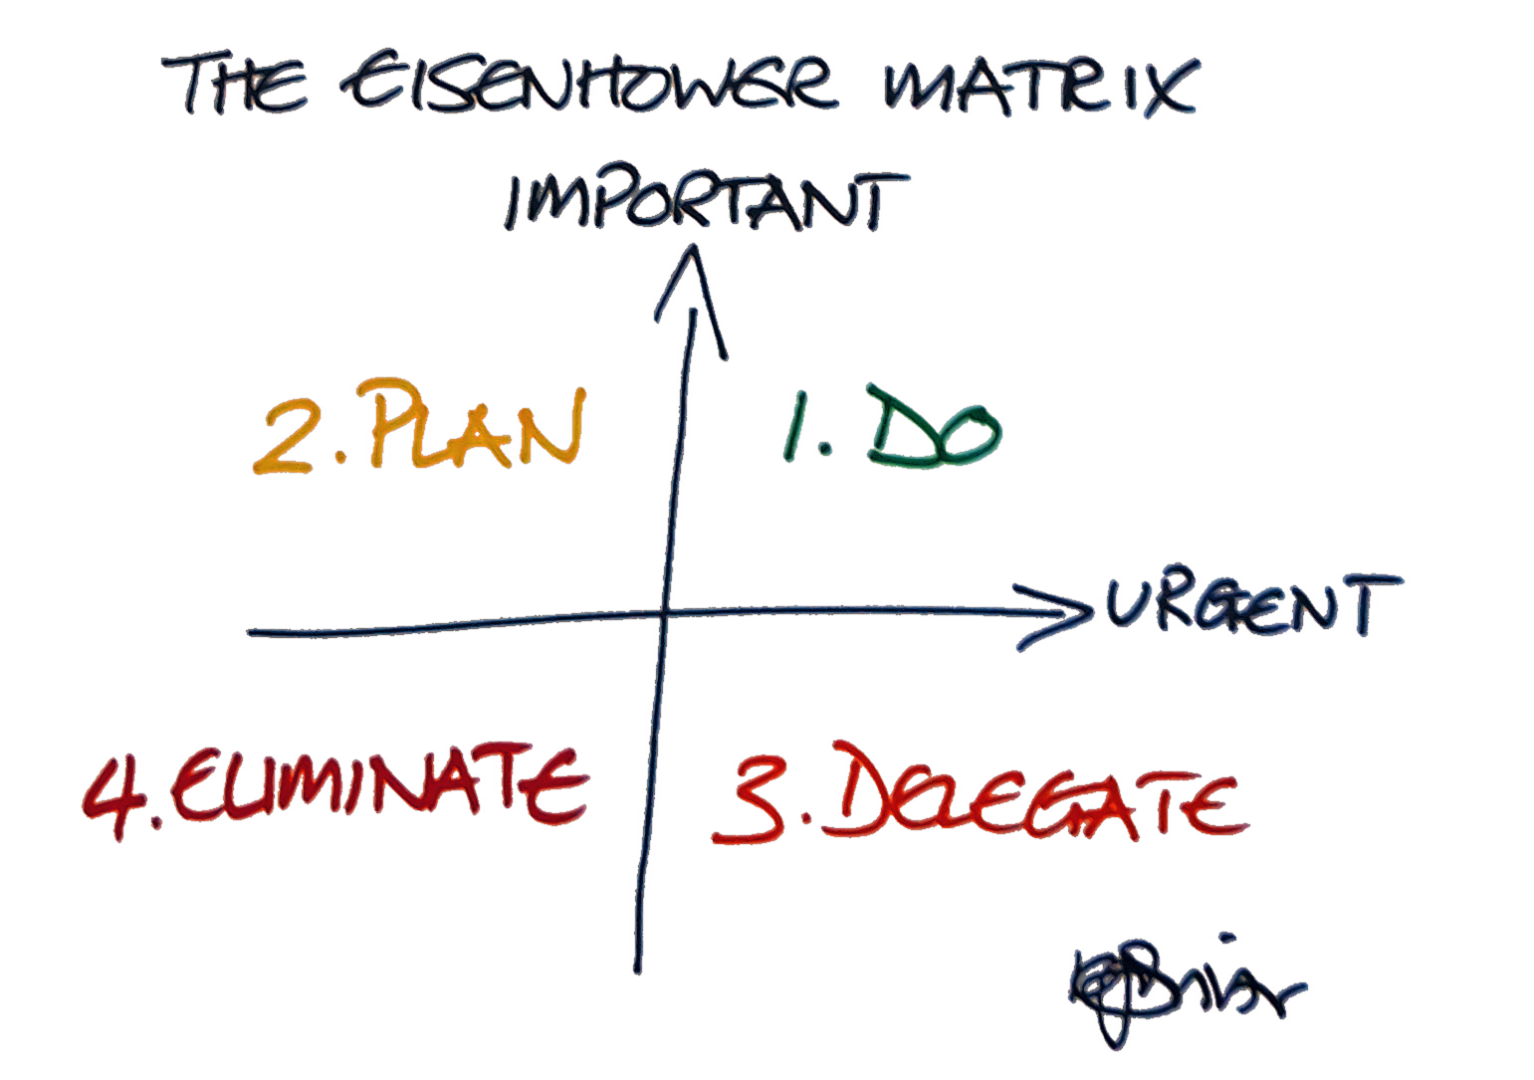 THE EISENHOWER MATRIX
IMPORTANT
2. PLAN
1. DO
URGENT
4. ELIMINATE
3. DELEGATE